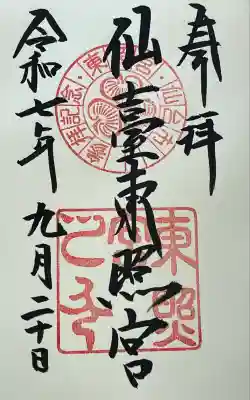 奉拝
仙臺東照宮
令和七年
九月二十日
東照